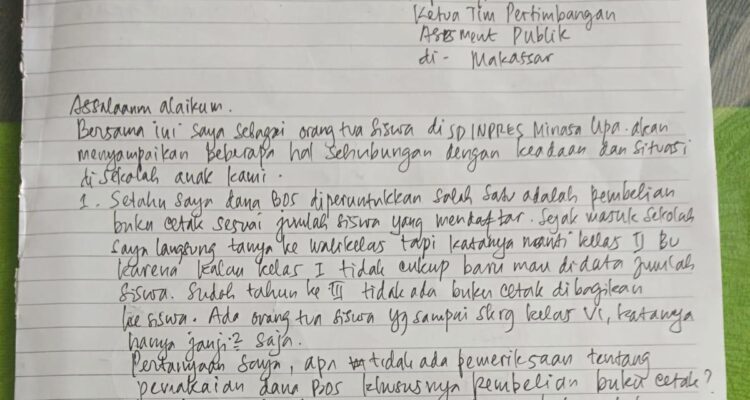 Ketua Tim Pertimbangan
Assment Publik
di - Makassar
Assalaanm alaikum.
Bersama ini saya sebagai orang tua siswa di SD INPRES Minasa Upa. akan
menyampaikan beberapa hal sehubungan dengan keadaan dan situasi
disekolah anak kami.
1. Setahu saya dana BOS diperuntukkan salah satu adalah pembelian
buku cetak sesuai jumlah siswa yang mendaftar. Sejak masuk sekolah
saya langsung tanya ke walikelas tapi katanya nanti kelas II Bu
karena kalau kelas I tidak cukup baru mau didata jumlah
siswa. Sudah tahun ke III tidak ada buku cetak dibagikan
ke siswa. Ada orang tua siswa yg sampai skrg kelas VI, katanya
hanya janji2 saja.
Pertanyaan saya, apa tidak ada pemeriksaan tentang
pemakaian dana BOS khususnya pembelian buku cetak?